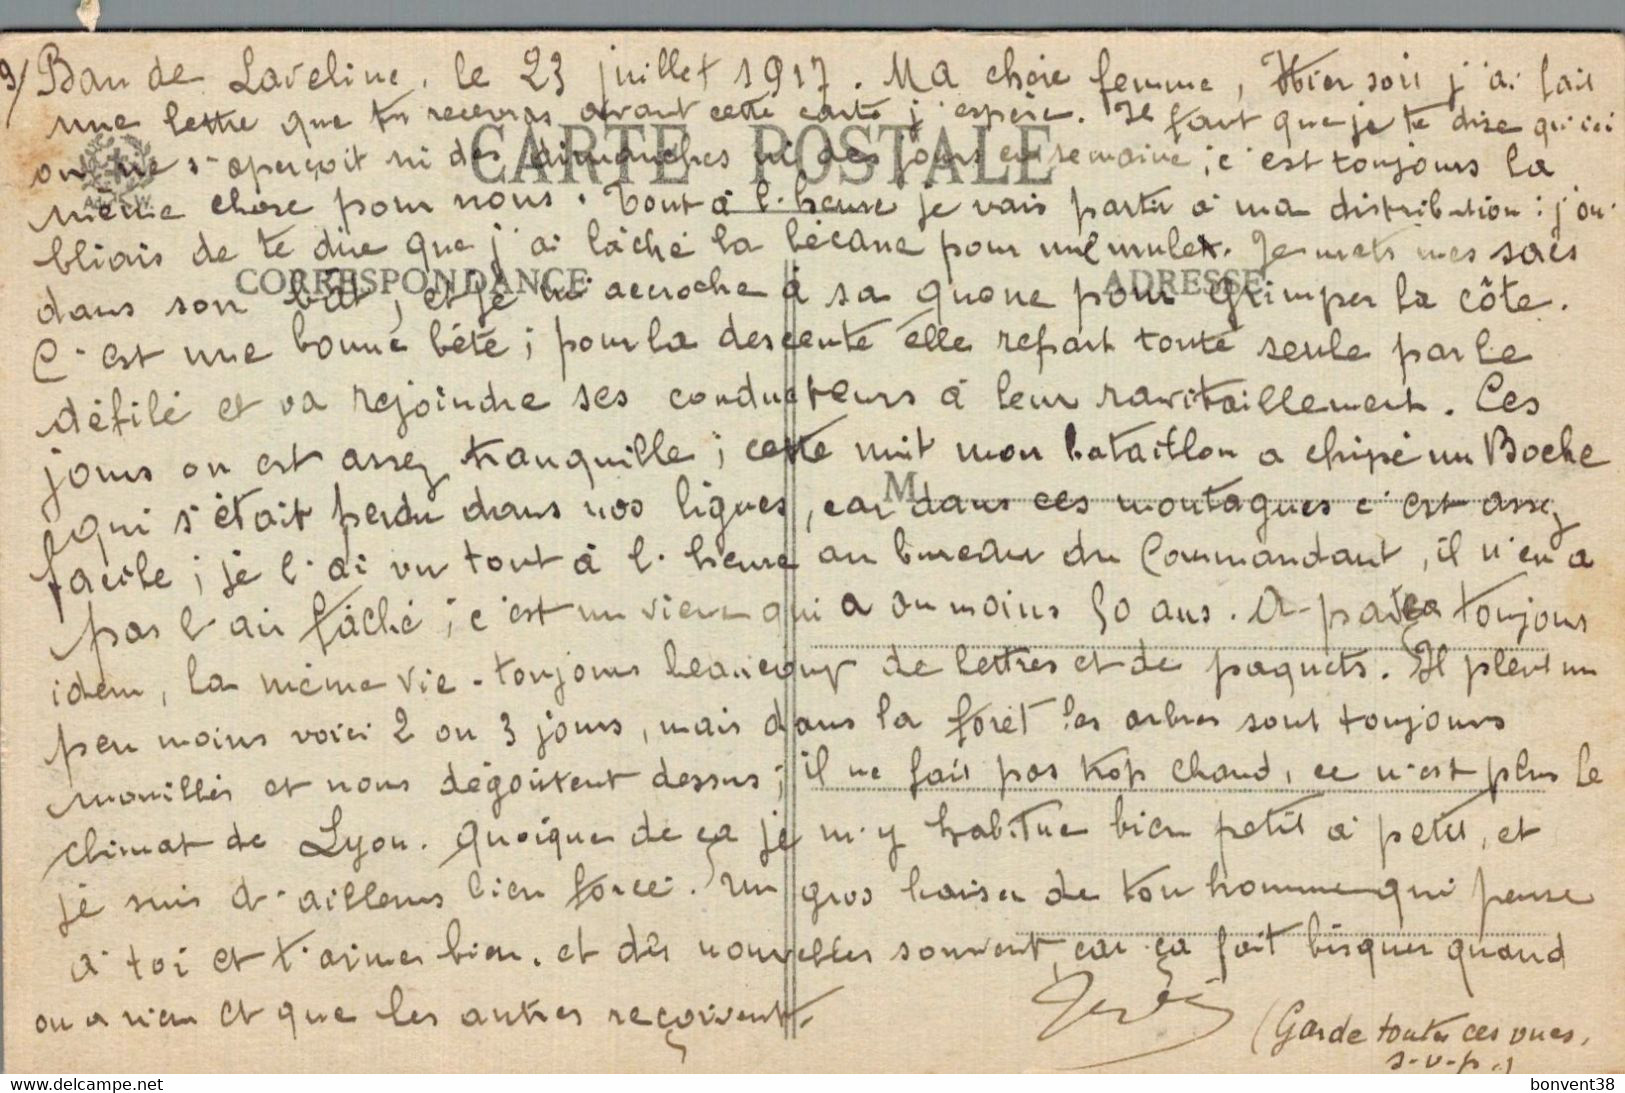 9/ Ban de Laveline, le 23 juillet 1917. Ma chère femme, Hier soir j'ai fait
une lettre que tu recevras avant cette carte j'espère. Il faut que je te dise qu'ici
on ne s'aperçoit ni des dimanches ni des jours en semaine ; c'est toujours la
CARTE POSTALE
même chose pour nous. Tout à l'heure je vais partir à ma distribution : j'ou-
bliais de te dire que j'ai lâché la bécane pour un mulet. Je mets mes sacs
CORRESPONDANCE ADRESSE
dans son bât, et je m'accroche à sa queue pour grimper la côte.
C'est une bonne bête ; pour la descente elle repart toute seule par le
défilé et va rejoindre ses conducteurs à leur ravitaillement. Ces
jours on est assez tranquille ; cette nuit mon bataillon a chipé un Boche
M
qui s'était perdu dans nos lignes, car dans ces montagnes c'est assez
facile ; je l'ai vu tout à l'heure au bureau du Commandant, il n'en a
pas l'air fâché ; c'est un vieux qui a au moins 50 ans. A part ça toujours
idem, la même vie - toujours beaucoup de lettres et de paquets. Il pleut un
peu moins voici 2 ou 3 jours, mais dans la forêt les arbres sont toujours
mouillés et nous dégoûtent dessus ; il ne fait pas trop chaud, ce n'est plus le
climat de Lyon. Quoique de ça je m'y habitue bien petit à petit, et
je suis d'ailleurs bien forcé. Un gros baiser de ton homme qui pense
à toi et t'aime bien. et des nouvelles souvent, car ça fait bisquer quand
on a rien et que les autres reçoivent.
(Garde toutes ces vues,
s.v.p.)
bonvent38